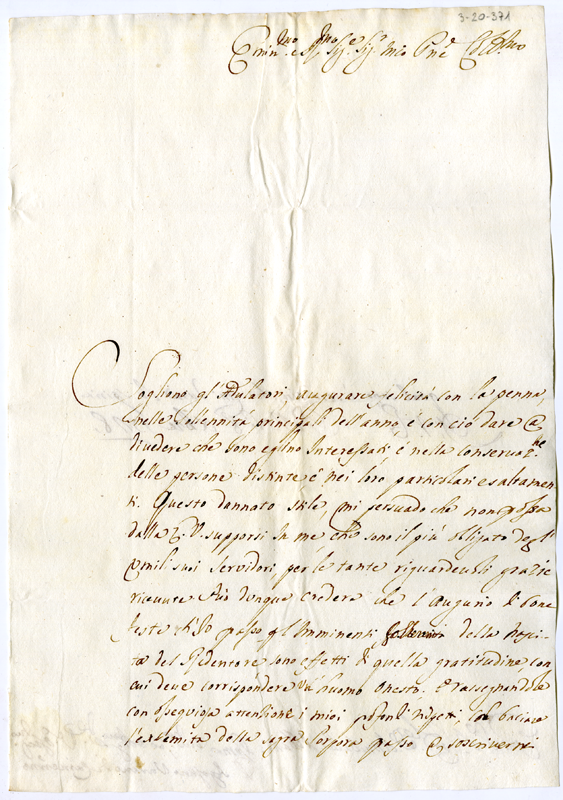 3-20-371
Emin.mo e R.mo Sig.e Sig.e mio P.ne Col.mo
Sogliono gl'Adulatori augurare felicità con la penna
nelle Sollennità principali dell'anno, è con ciò dare a
divedere che sono eglino Interessati è nella conservaz.ne
delle persone distinte è nei loro particolari esaltamen
ti. Questo dannato stile, mi persuado che non possa
dalla E.V. supporsi In me che sono il più obligato degl'
Umili suoi Servidori per le tante riguardevoli grazie
riceuute dunque credere che l'Augurio di bone
feste ch'Io passo gl'Imminenti Sollennità della
del Redentore sono effetti di quella gratitudine, con
cui deve corrispondere un huomo onesto. E rassegnandole
con ossequiosa attenzione i miei rispetti, col baciare
l'estremità della sagra Porpora passo a soscrivermi